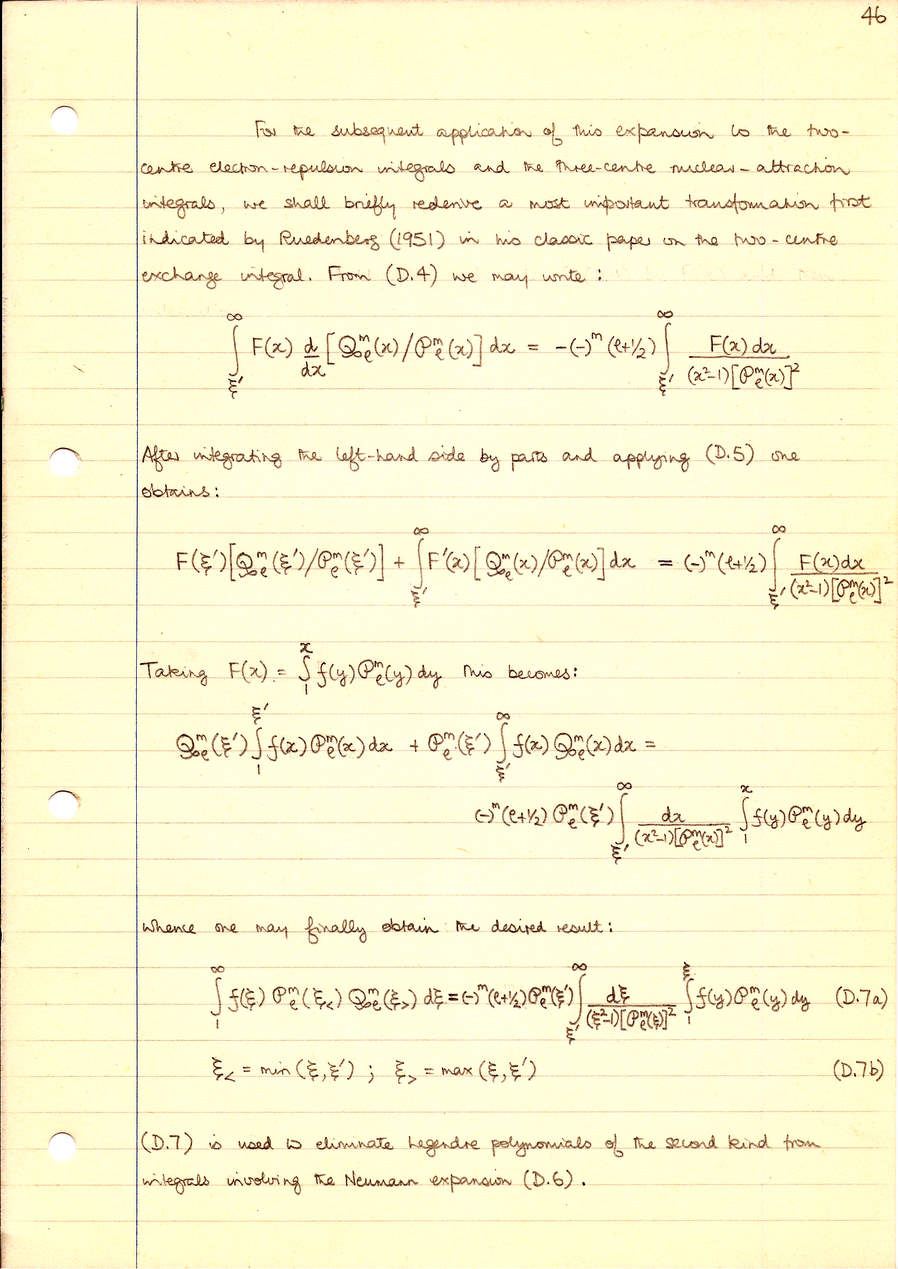 46
For the subsequent application of this expansion to the two-
centre electron-repulsion integrals and the three-centre nuclear-attraction
integrals, we shall briefly rederive a most important transformation first
indicated by Ruedenberg (1951) in his classic paper on the two-centre
exchange integral. From (D.4) we may write:
∫_{ξ′}^{∞} F(x) d/dx [𝒬_ℓ^m(x)/𝒫_ℓ^m(x)] dx = -(-)^m (ℓ+1/2) ∫_{ξ′}^{∞} F(x) dx / (x²-1)[𝒫_ℓ^m(x)]²
After integrating the left-hand side by parts and applying (D.5) one
obtains:
F(ξ′)[𝒬_ℓ^m(ξ′)/𝒫_ℓ^m(ξ′)] + ∫_{ξ′}^{∞} F′(x) [𝒬_ℓ^m(x)/𝒫_ℓ^m(x)] dx = (-)^m (ℓ+1/2) ∫_{ξ′}^{∞} F(x)dx / (x²-1)[𝒫_ℓ^m(x)]²
Taking F(x) = ∫_{1}^{x} f(y) 𝒫_ℓ^m(y) dy this becomes:
𝒬_ℓ^m(ξ′) ∫_{1}^{ξ′} f(x) 𝒫_ℓ^m(x) dx + 𝒫_ℓ^m(ξ′) ∫_{ξ′}^{∞} f(x) 𝒬_ℓ^m(x) dx =
(-)^m (ℓ+1/2) 𝒫_ℓ^m(ξ′) ∫_{ξ′}^{∞} dx / (x²-1)[𝒫_ℓ^m(x)]² ∫_{1}^{x} f(y) 𝒫_ℓ^m(y) dy
whence one may finally obtain the desired result:
∫_{1}^{∞} f(ξ) 𝒫_ℓ^m(ξ_<) 𝒬_ℓ^m(ξ_>) dξ = (-)^m (ℓ+1/2) 𝒫_ℓ^m(ξ′) ∫_{ξ′}^{∞} dξ / (ξ²-1)[𝒫_ℓ^m(ξ)]² ∫_{1}^{ξ} f(y) 𝒫_ℓ^m(y) dy (D.7a)
ξ_< = min (ξ,ξ′) ; ξ_> = max (ξ,ξ′) (D.7b)
(D.7) is used to eliminate Legendre polynomials of the second kind from
integrals involving the Neumann expansion (D.6).